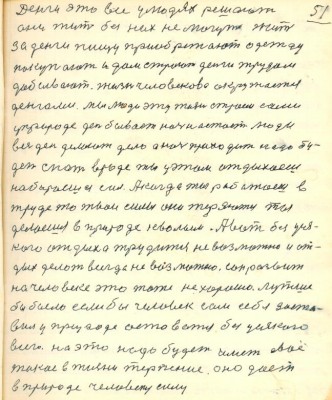 51
Деньги это все у людях решают
они жить без них не могут жить
За деньги пищу приобретают одежду
покупают и дом строют деньги трудом
добывают. жизнь человеческа окружается
деньгами. мы люди эту жизнь строим сами
у природе ден бывает начинается люди
весь ден делают дело а ноч приходит надо бу-
дет спать вроде ты у этом отдыхаеш
набираеш сил. А когда ты работаеш в
труде то твои силы они теряются ты
делаешся в природе
А вот без уся-
кого отдыха трудится невозможно и от-
дых делат всегда не возможно.
на человеке это тоже нехорошо. Лутше
бы было если бы человек сам себя заста-
вил у природе остаться без усякого
всего. на это надо будет имет
такое в жизни терпение. оно дает
в природе человеку силу